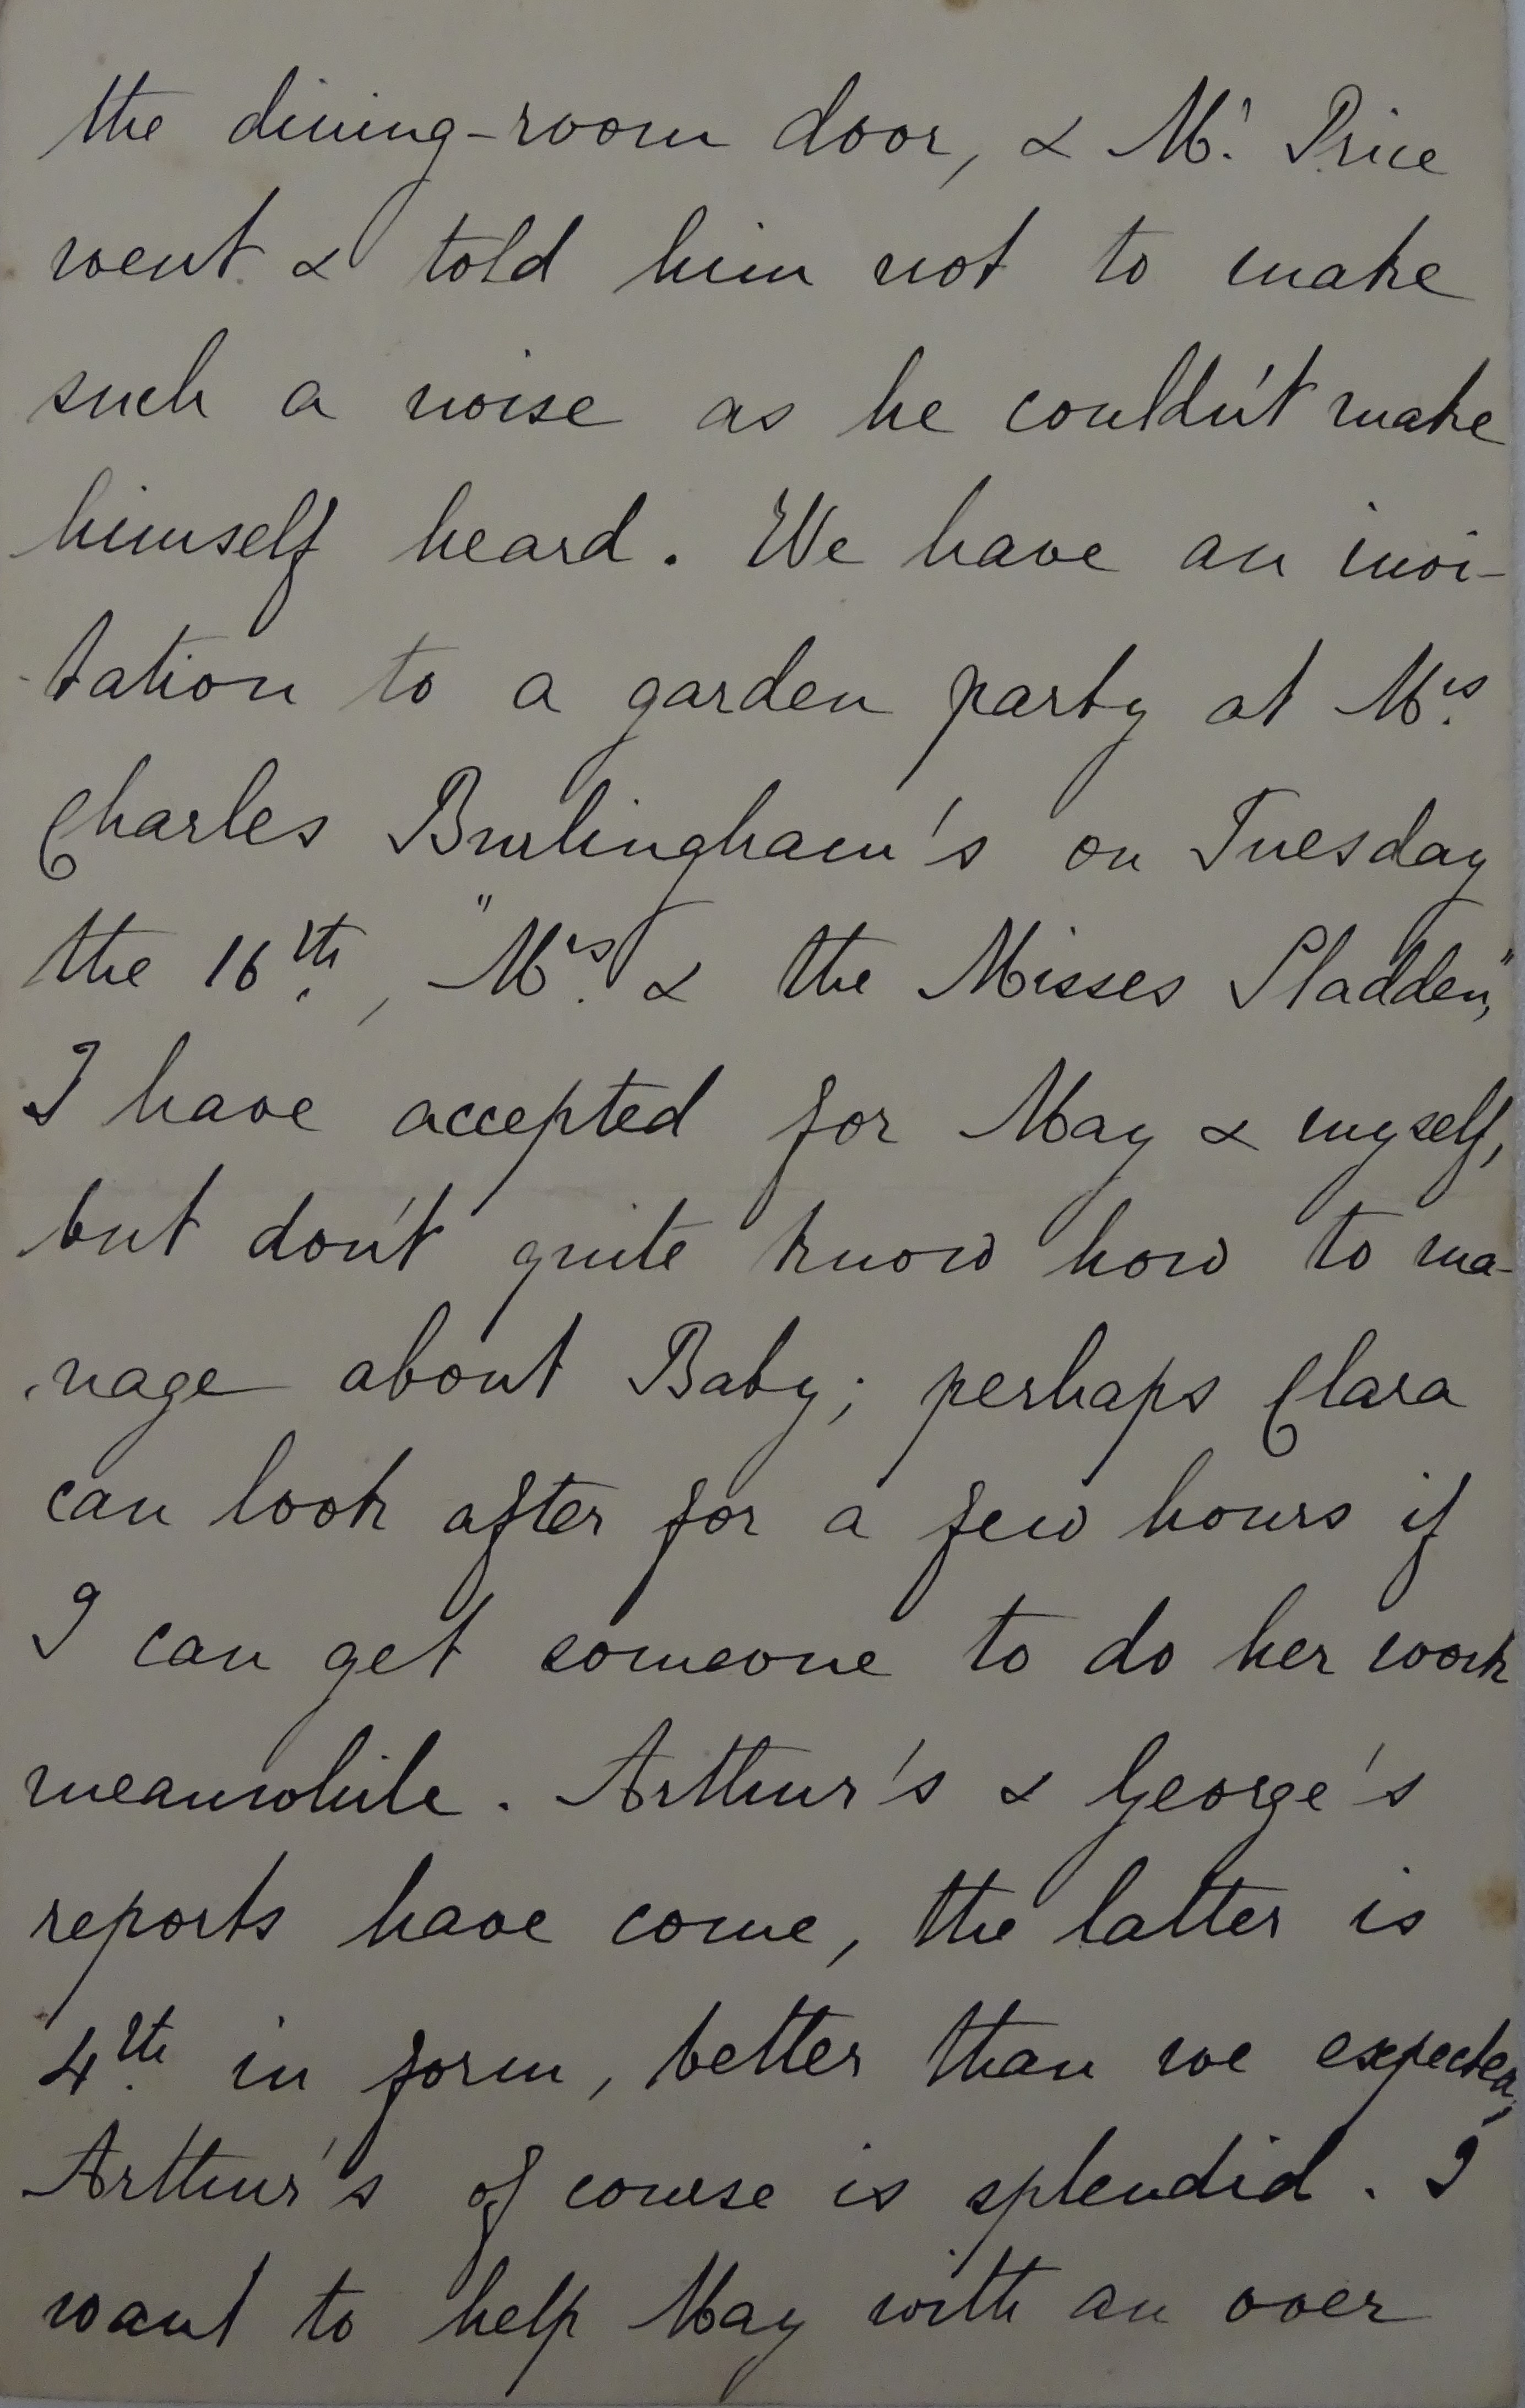 the dining-room door, & Mr. Price
went & told him not to make
such a noise as he couldn't make
himself heard. We have an invi-
tation to a garden party at Mrs.
Charles Burlingham's on Tuesday
the 16th., "Mrs. & the Misses Sladden",
I have accepted for May & myself,
but don't quite know how to ma-
nage about Baby; perhaps Clara
can look after for a few hours if
I can get someone to do her work
meanwhile. Arthur's & George's
reports have come, the latter is
4th. in form, better than we expected,
Arthur's of course is splendid. I
want to help May with an over